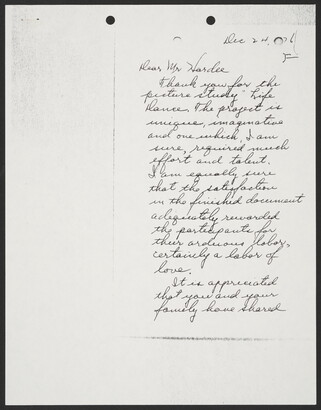 Dec 24,
Dear Mr Hardee
Thank you for the
picture study "Life
Dance. The project is
unique, imaginative
and one which, I am
sure, required much
effort and talent.
I am equally sure
that the satisfaction
in the finished document
adequately rewarded
the participants for
their arduous labor,
certainly a labor of
love.
It is appreciated
that you and your
family have shared